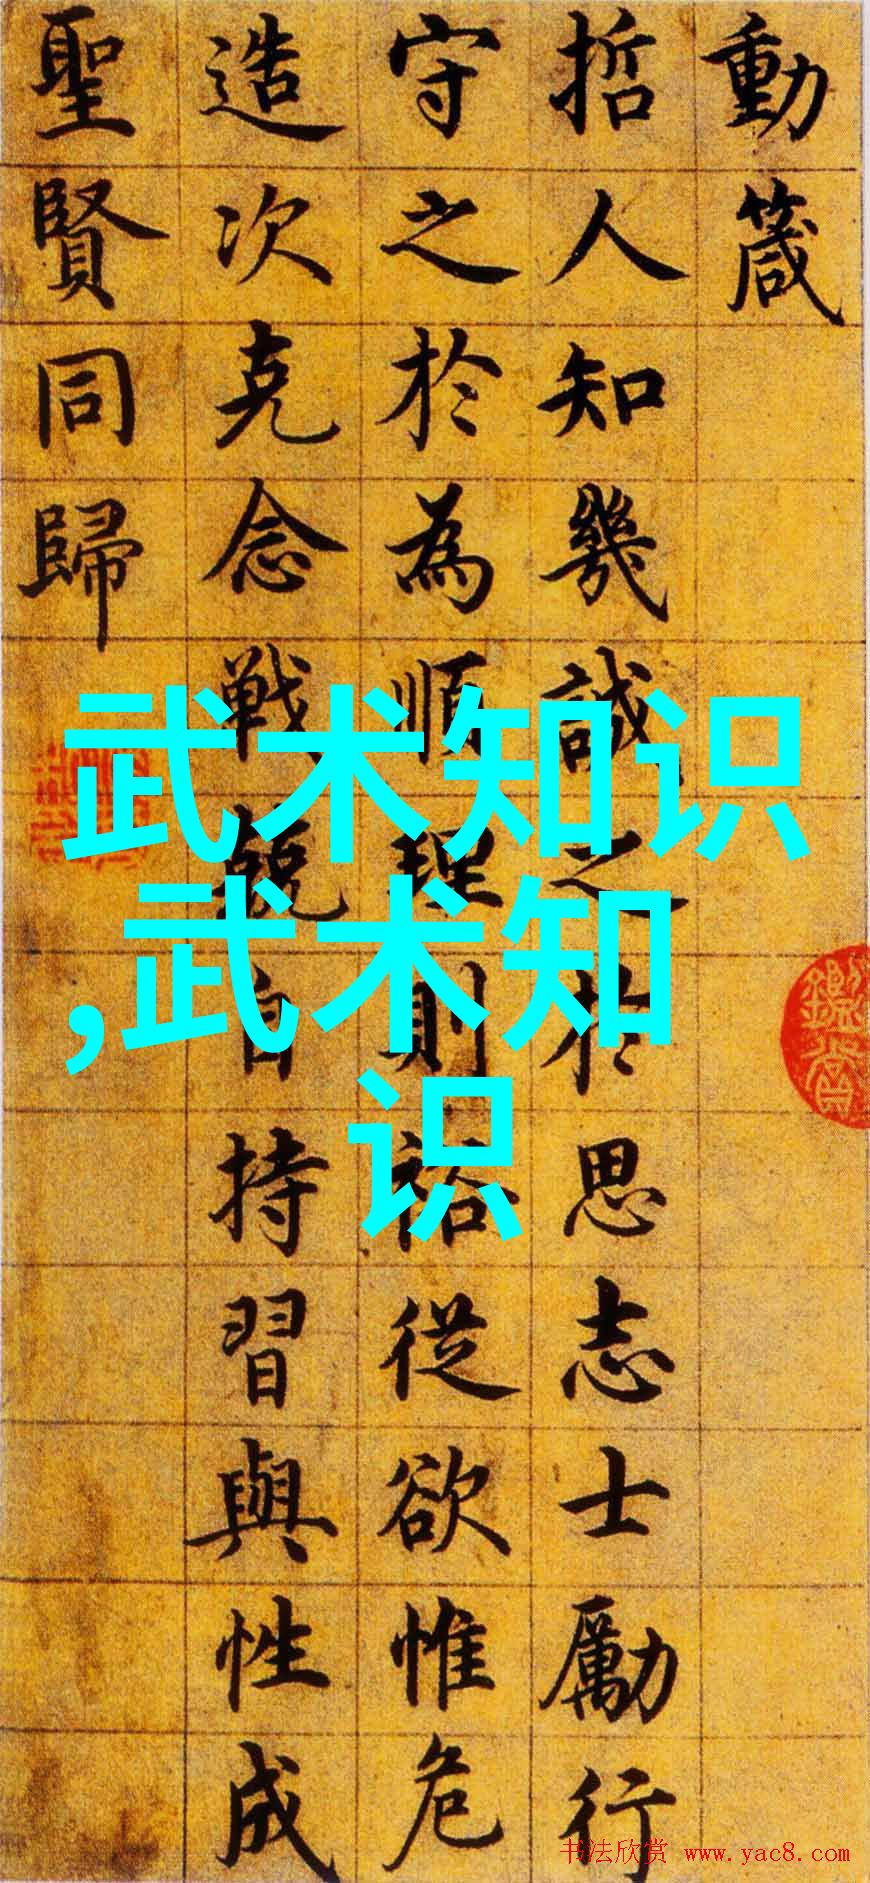 動箴
哲人知幾誠之於思志士勵行
守之於為順理則裕從欲惟危
造次克念戰兢自持習與性成
聖賢同歸
武术知识
,武术知
识
书法欣赏 www.yac8.com